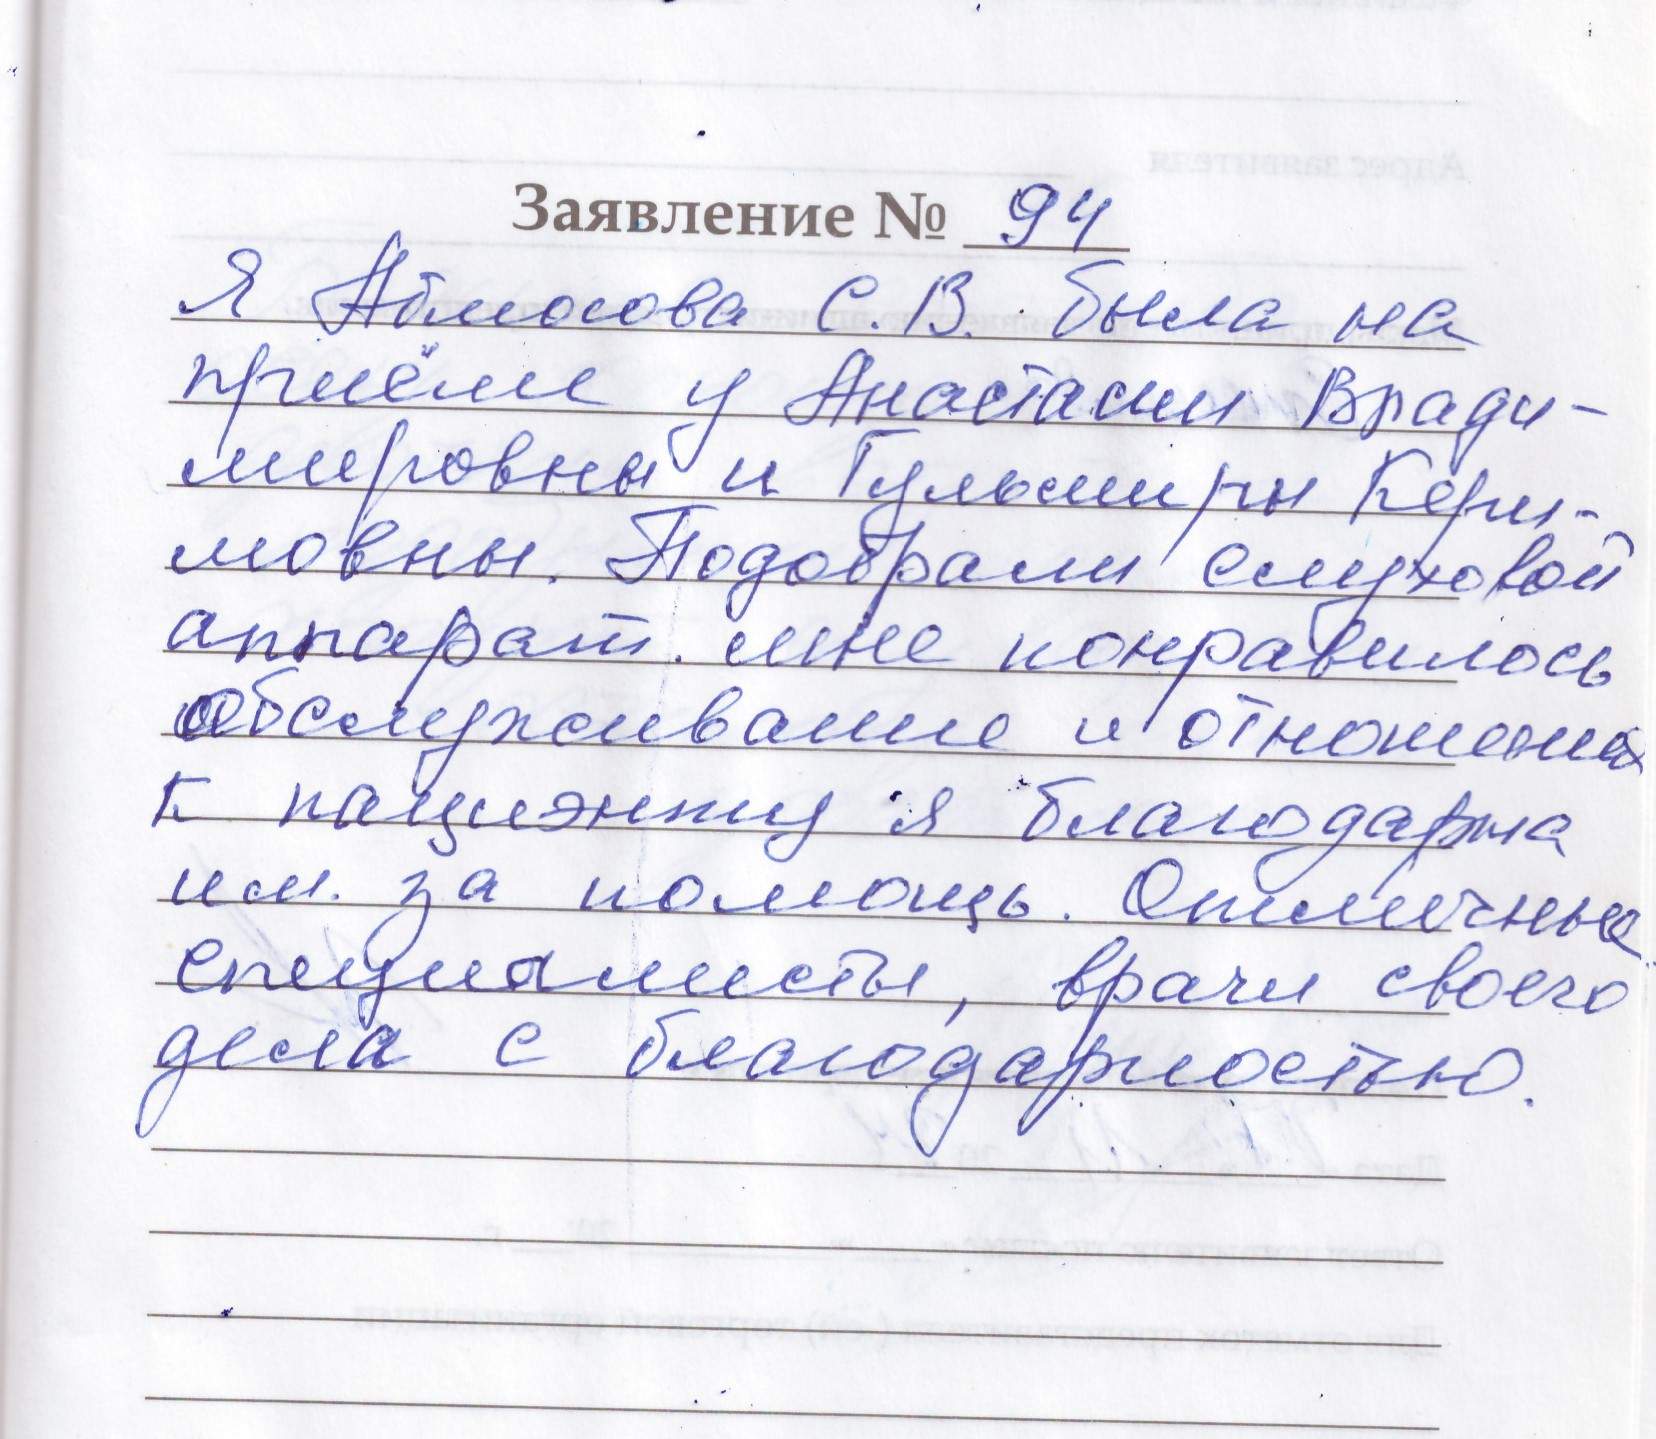 Заявление № 94
Я Аблосова С.В. была на
приёме у Анастасии Влади-
мировны и Гульмиры Кери-
мовны. Подобрали слуховой
аппарат. мне понравилось
обслуживание и отношение
к пациэнту я благодарна
им. за помощь. Отличные
специалисты, врачи своего
дела с благодарностью.